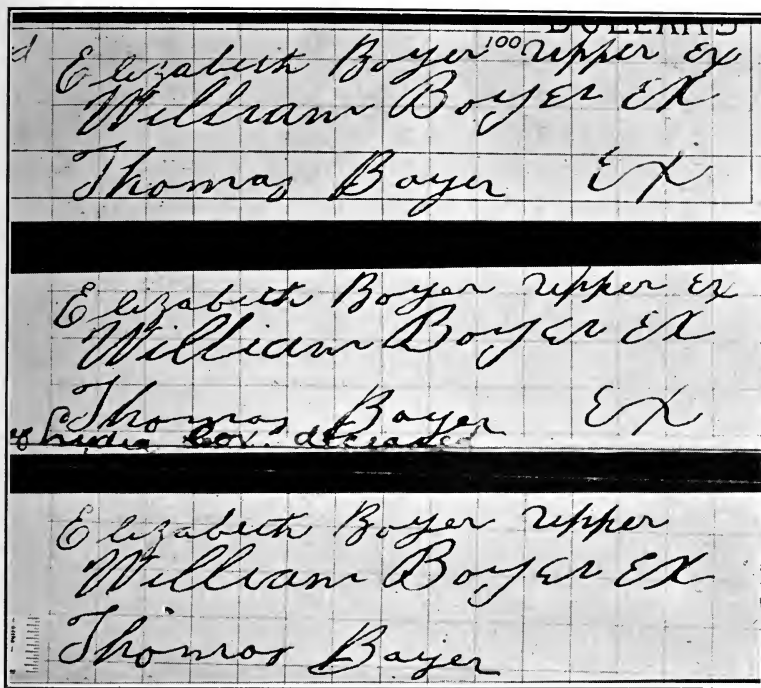 DOLLARS
Elizabeth Boyer 100 Upper Ex
William Boyer EX
Thomas Boyer EX
Elizabeth Boyer Upper Ex
William Boyer EX
Thomas Boyer EX
of Lydia Cov. deceased
Elizabeth Boyer Upper
William Boyer EX
Thomas Boyer